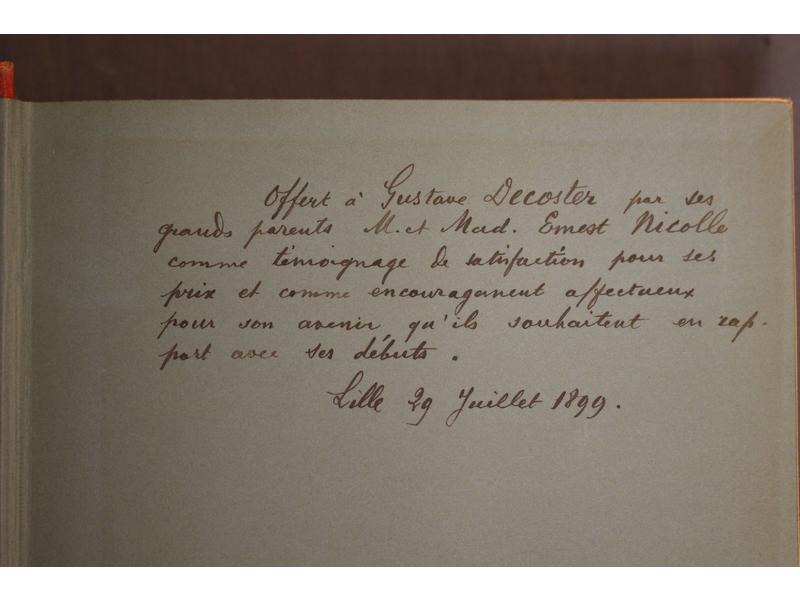 Offert à Gustave Decoster par ses
grands parents M. et Mad. Ernest Nicolle
comme témoignage de satisfaction pour ses
prix et comme encouragement affectueux
pour son avenir, qu'ils souhaitent en rap-
port avec ses débuts.
Lille 29 Juillet 1899.